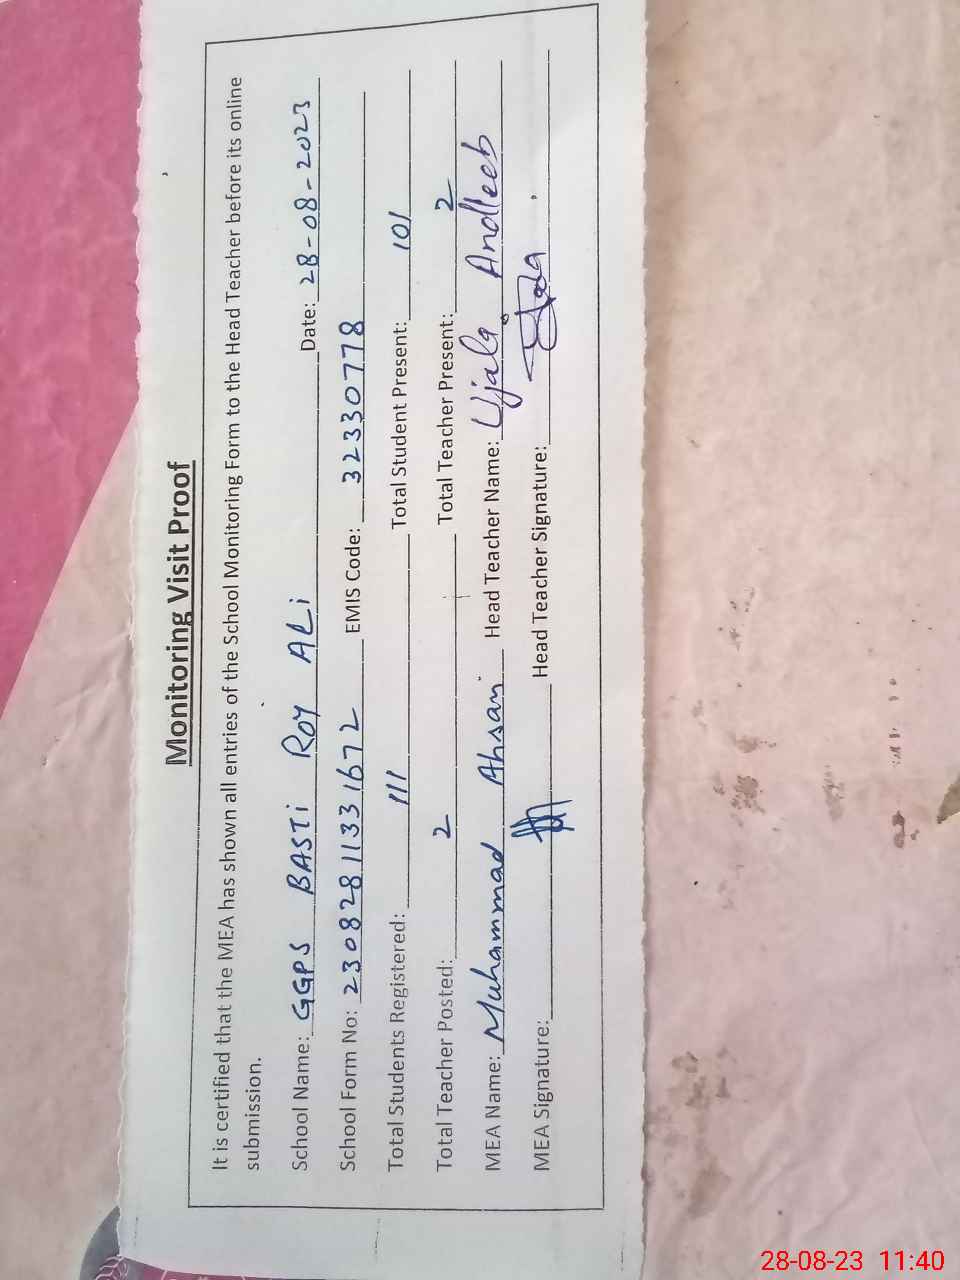 Monitoring Visit Proof
It is certified that the MEA has shown all entries of the School Monitoring Form to the Head Teacher before its online
submission.
School Name: GGPS BASTi ROY ALi Date: 28-08-2023
School Form No: 23082811331672 EMIS Code: 32330778
Total Students Registered: 111 Total Student Present: 101
Total Teacher Posted: 2 Total Teacher Present: 2
MEA Name: Muhammad Ahsan Head Teacher Name: Ujala Andleeb
MEA Signature: Head Teacher Signature:
28-08-23 11:40